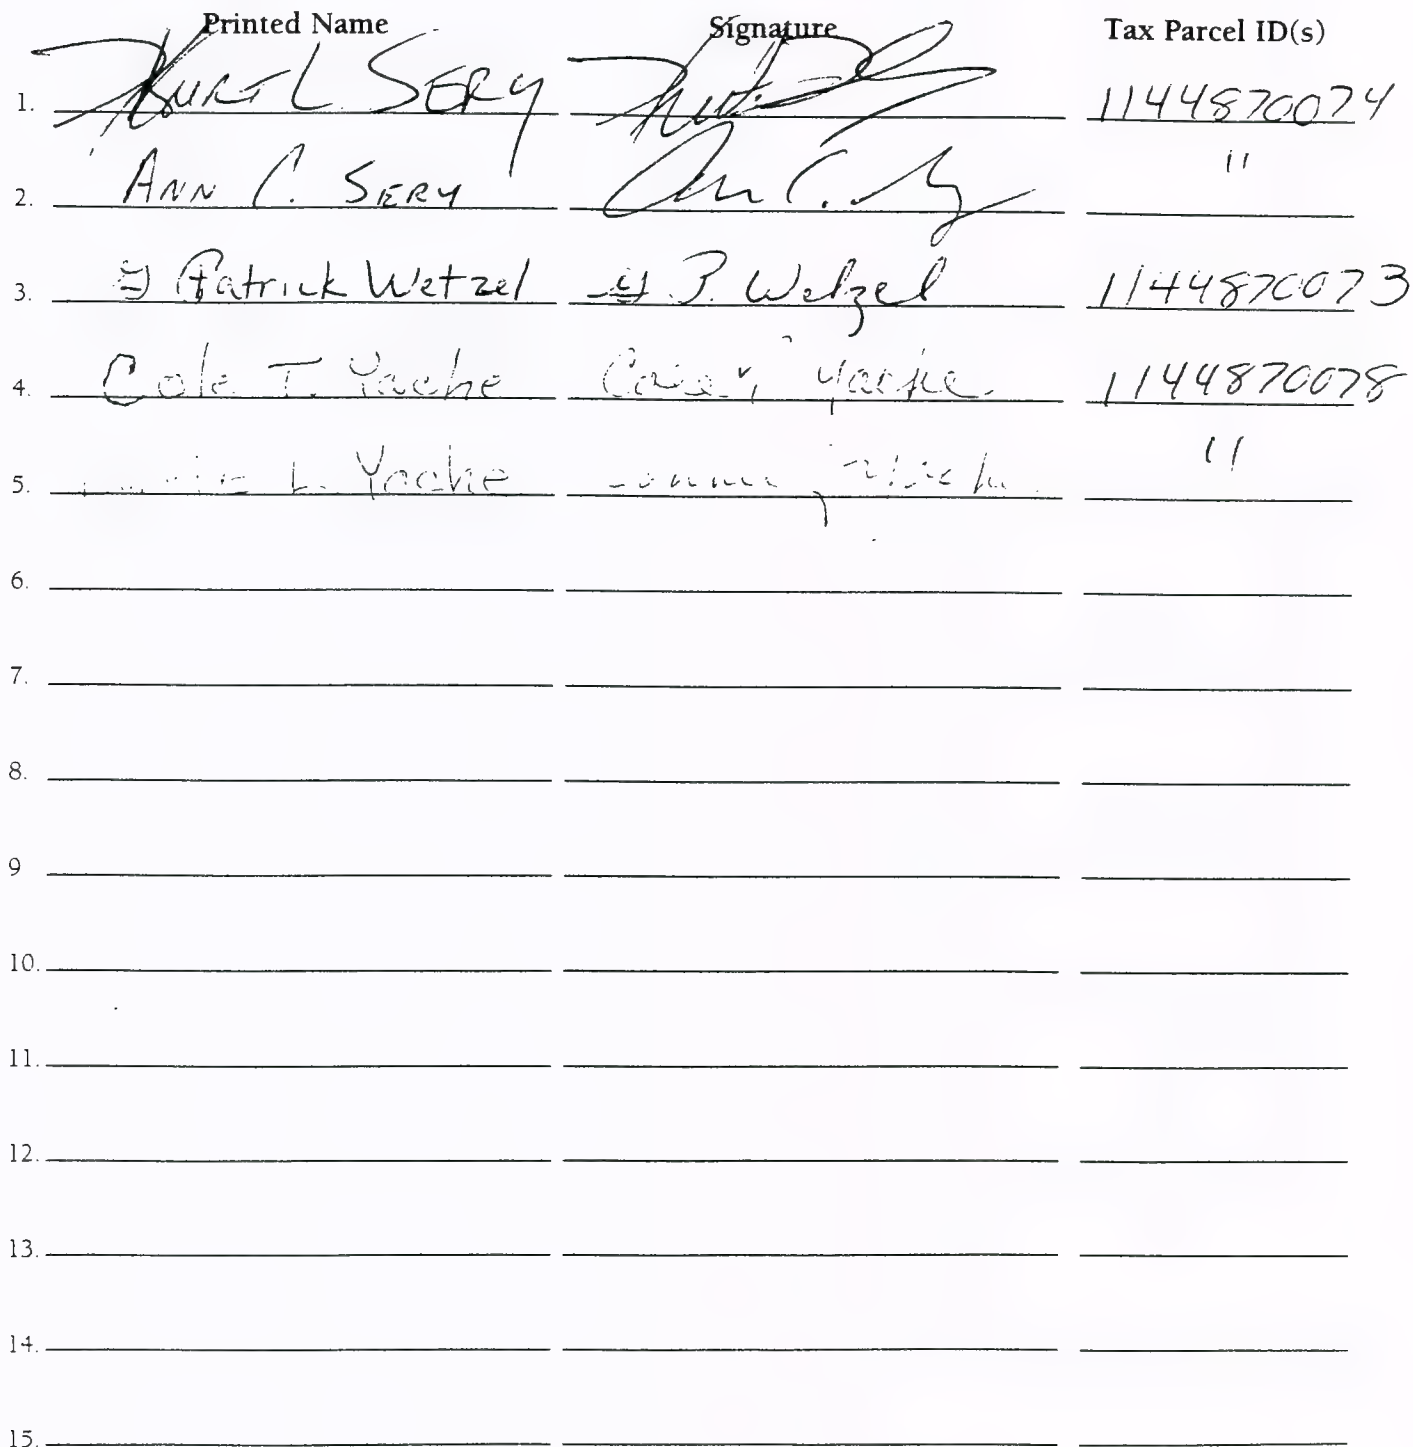 Printed Name Signature Tax Parcel ID(s)
1. KURT L. SERY 1144870074
2. ANN C. SERY Ann C. "
3. G Patrick Wetzel G P. Wetzel 1144870073
4. Cole T. Yache Yache 1144870078
5. L. Yache "
6.
7.
8.
9
10.
11.
12.
13.
14.
15.